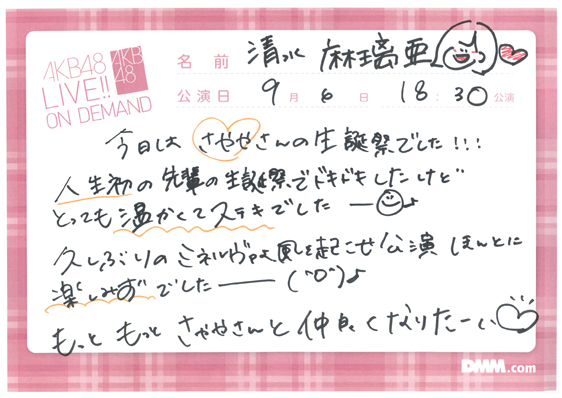 AKB48
LIVE!!
ON DEMAND
AKB
48
名前 清水 麻璃亜
公演日 9月6日 18:30公演
今日は さややさんの生誕祭でした!!!
人生初の先輩の生誕祭でドキドキしたけど
とっても温かくてステキでした ー♪
久しぶりのミネルヴァよ風を起こせ公演 ほんとに
楽しみずでした ー (^O^)♪
もっと もっと さややさんと 仲良くなりたーい
DMM.com